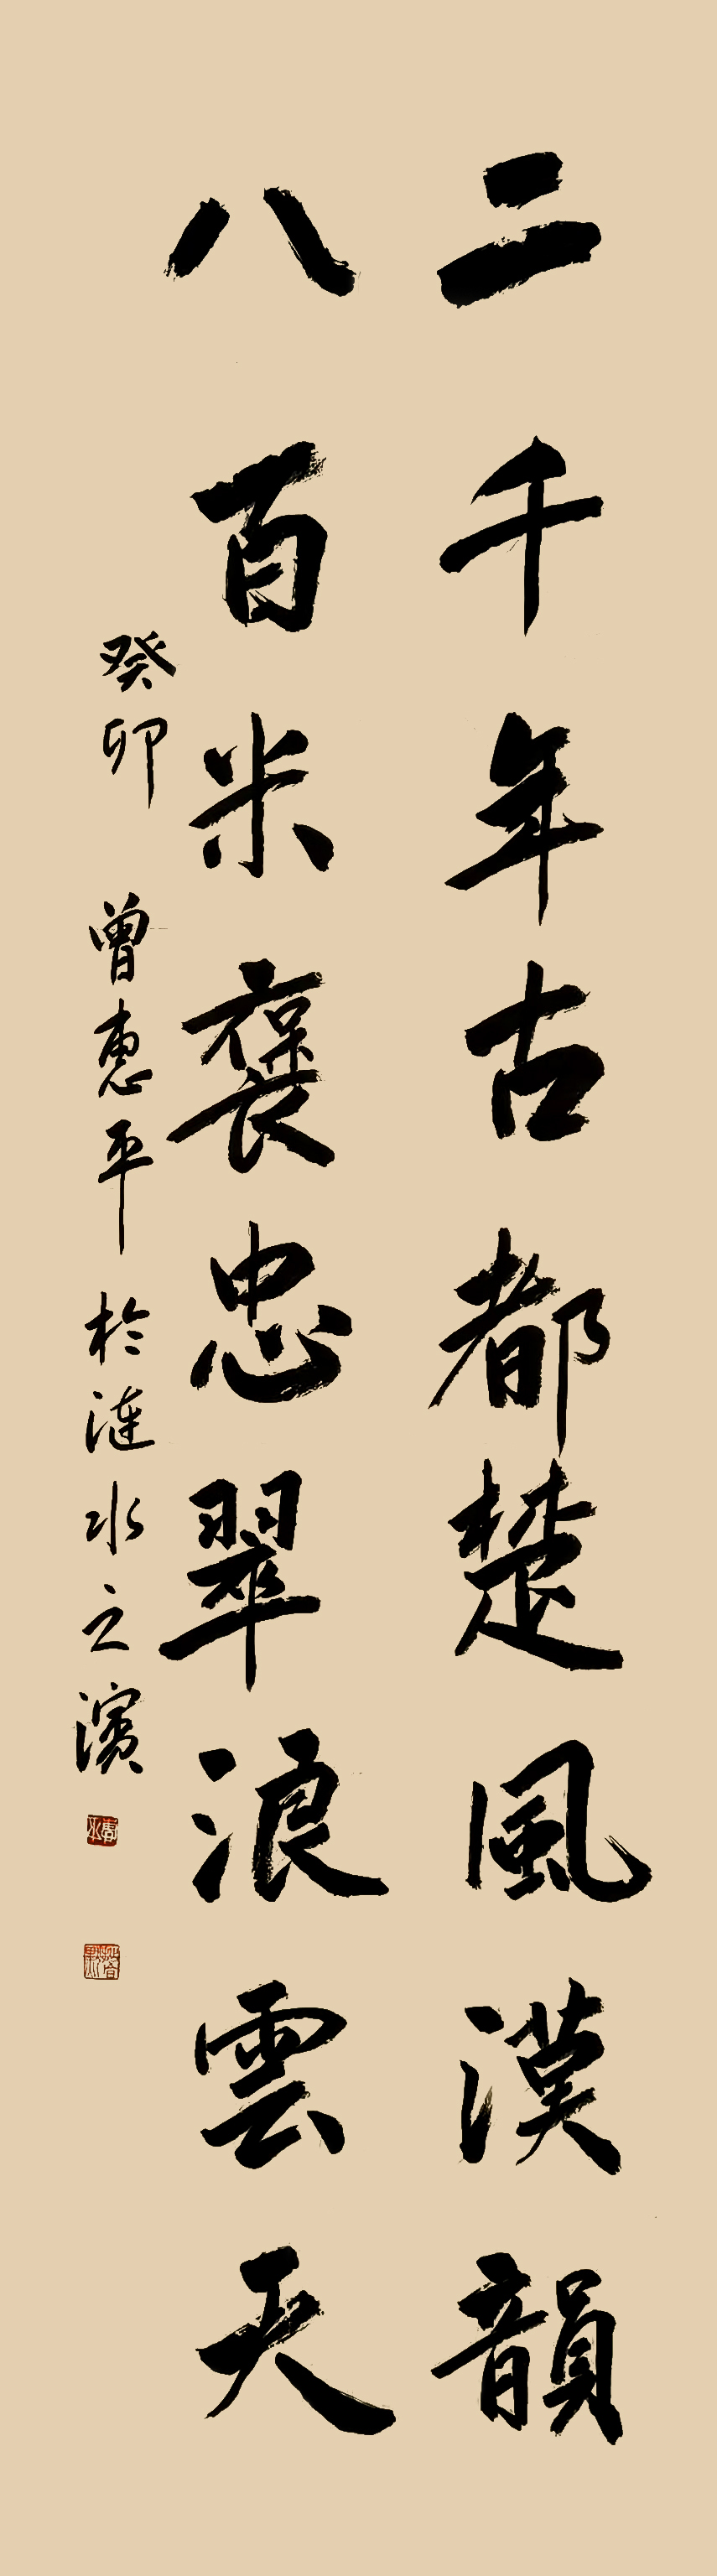 二千年古都楚風漢韻
八百米褒忠翠浪雲天
癸卯 曾惠平於漣水之濱